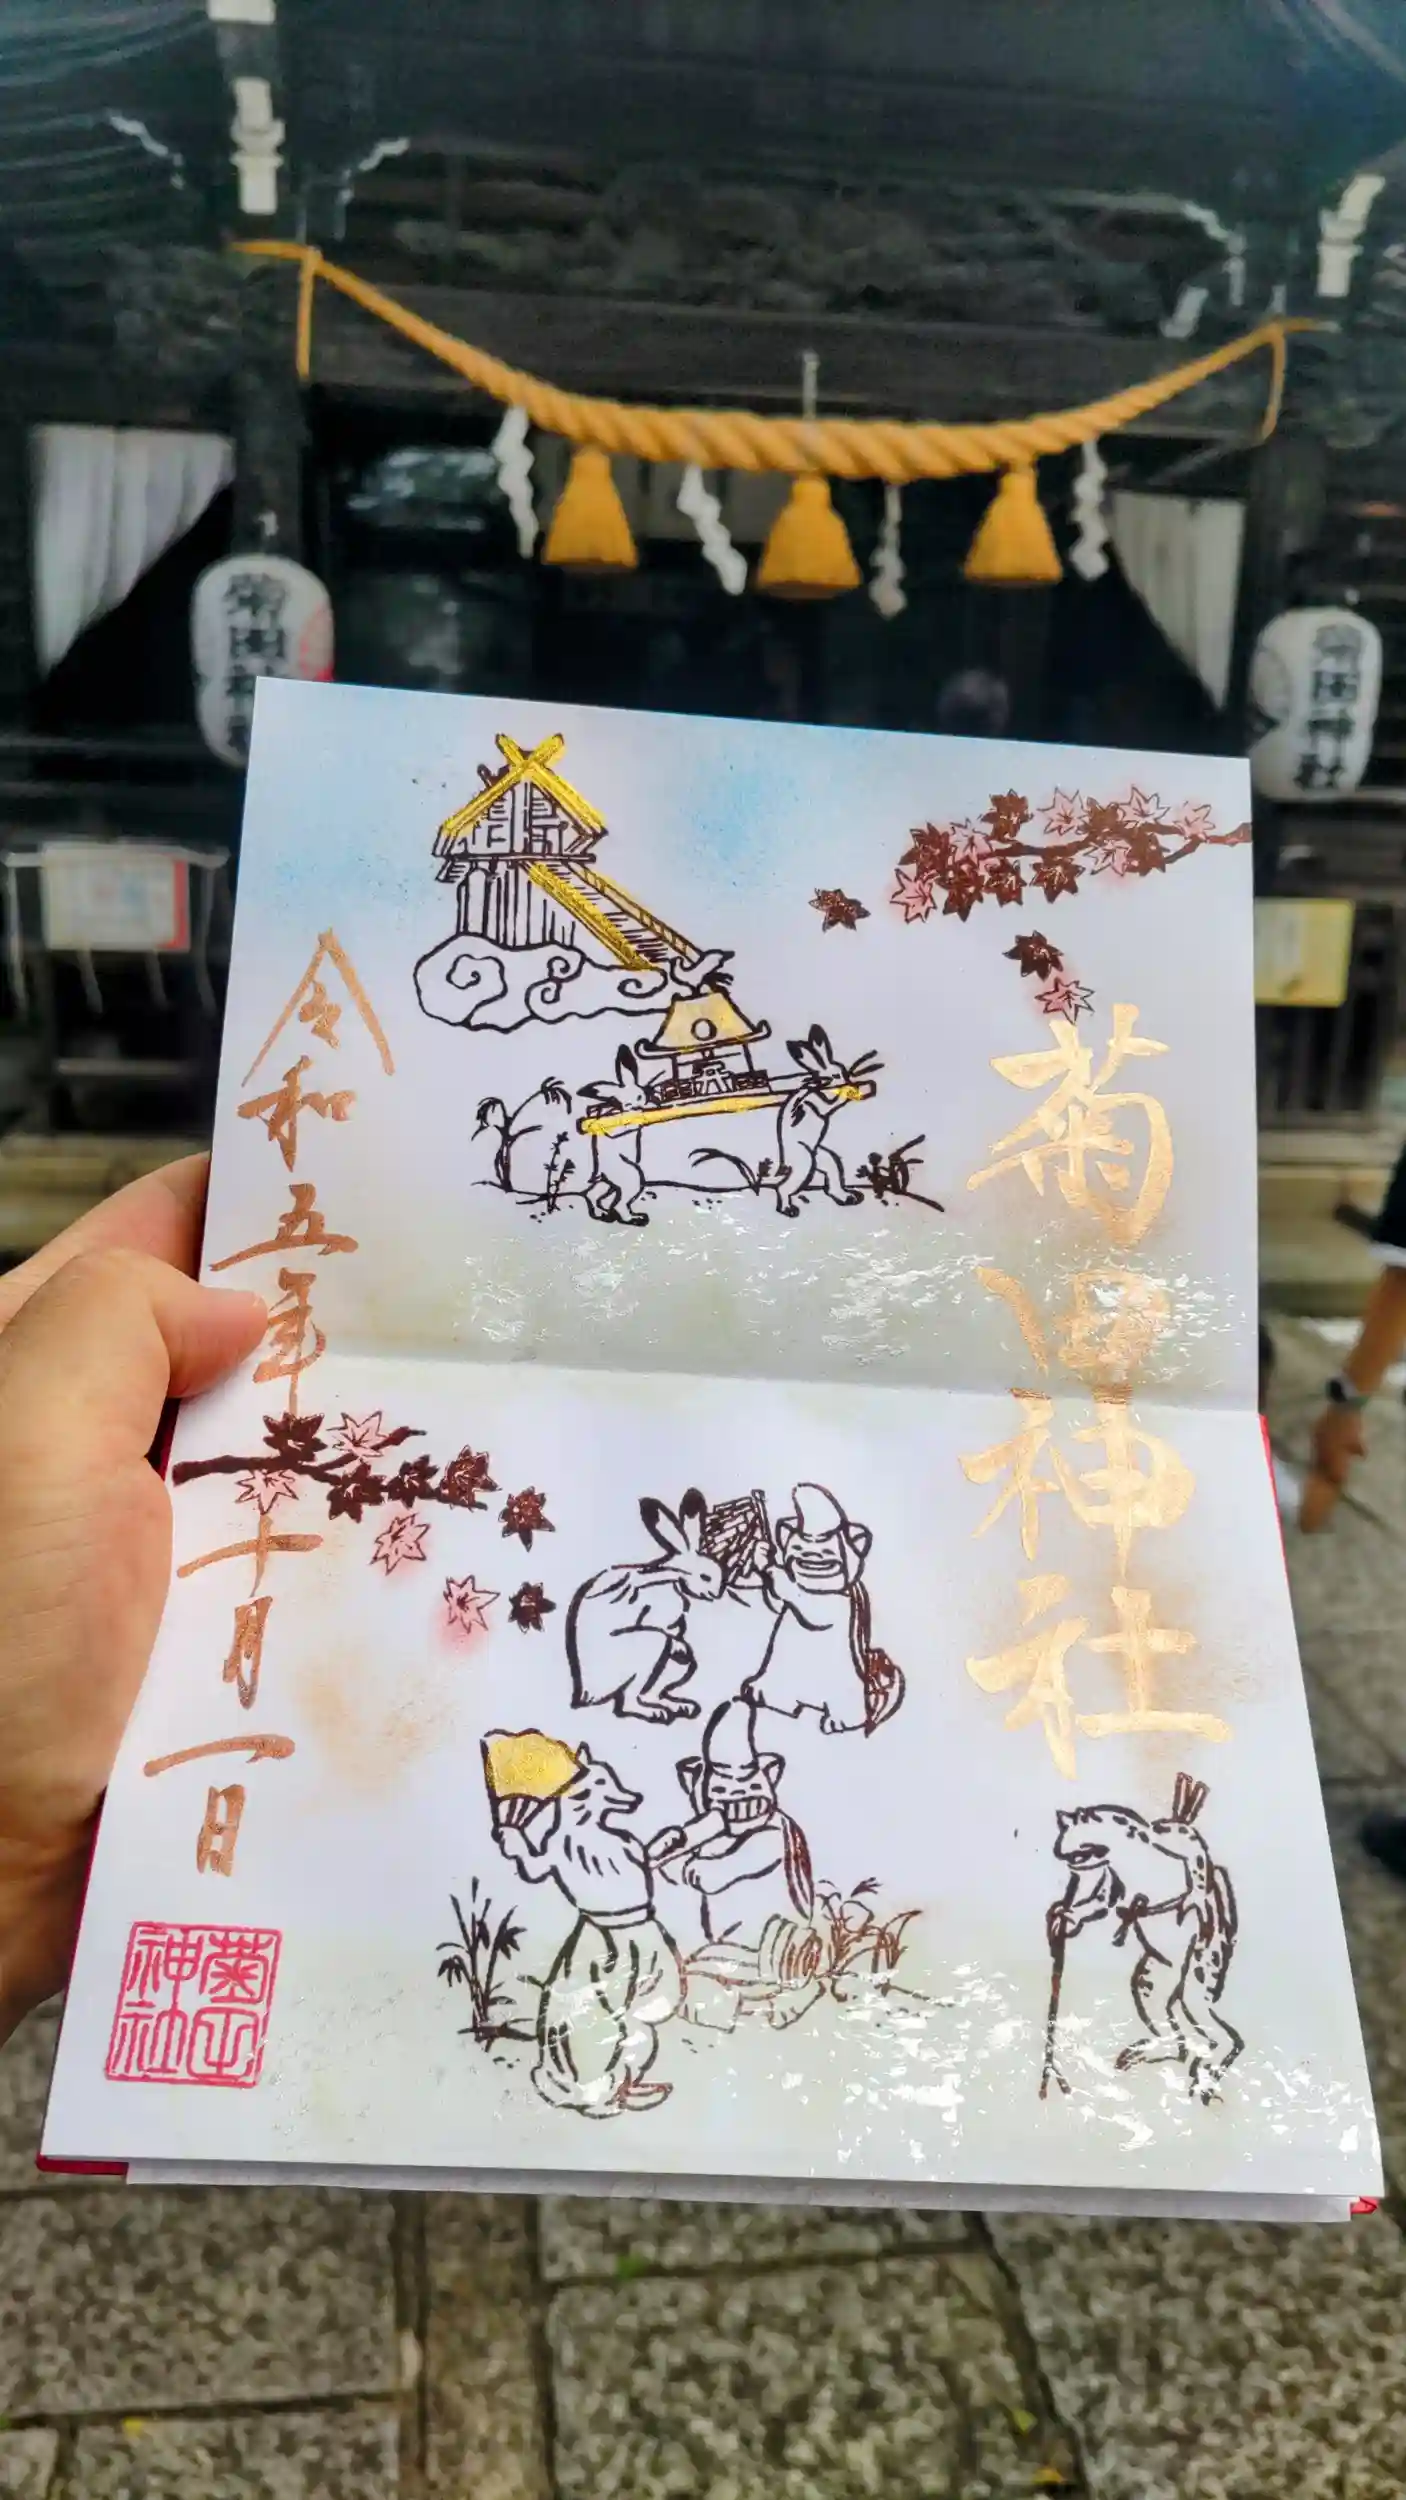 菊田神社
令和五年十月一日
菊田神社
菊田神社
菊田神社